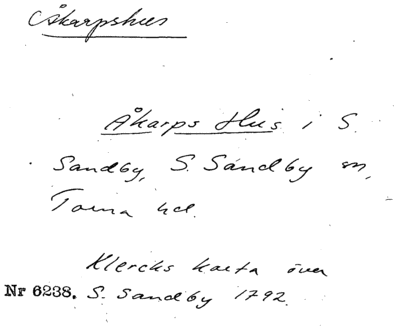 Åkarpshus
Åkarps Hus i S.
Sandby, S. Sandby sn,
Torna hd.
Klercks karta över
Nr 6238. S. Sandby 1792.